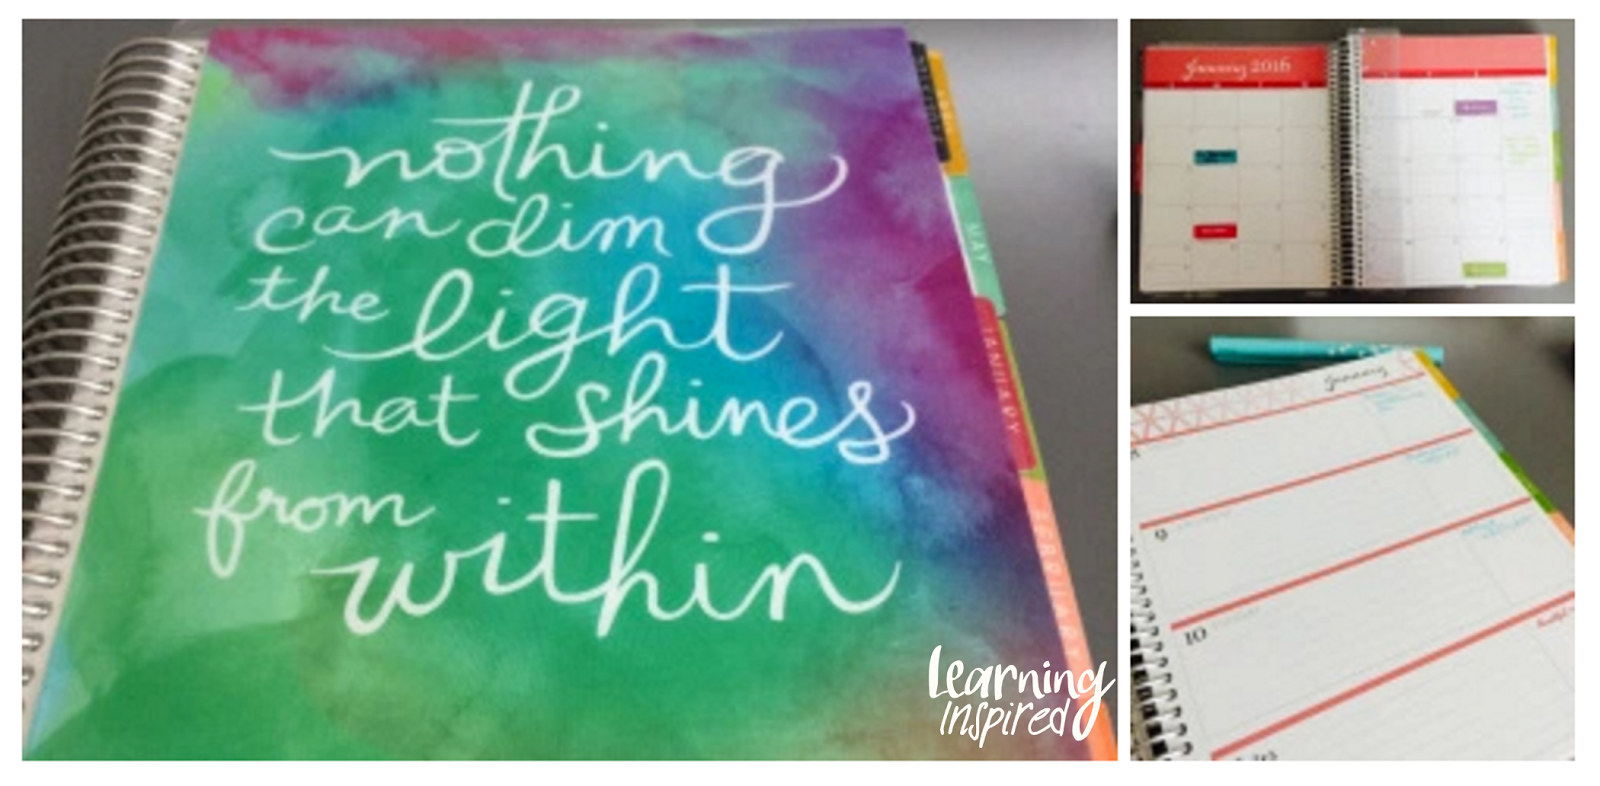 nothing
can dim
the light
that shines
from
within
MAY
JANUARY
FEBRUARY
Learning
Inspired
January 2016
January
9
10